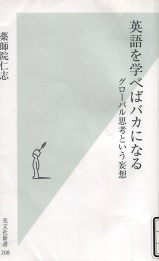 英語を学べばバカになる
グローバル思考という妄想
薬師院仁志
光文社新書
208